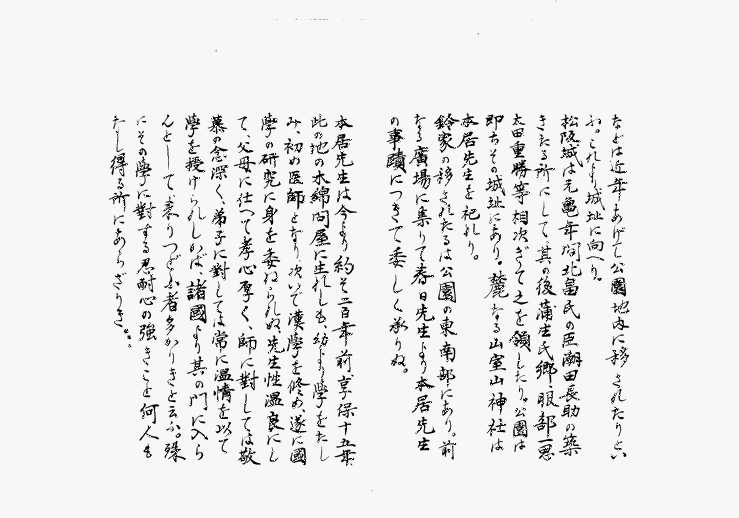 などは近年あげて公園地内に移されたりとい
ふ。これより城址に向へり。
松阪城は元亀年間北畠氏の臣潮田長助の築
きたる所にして、其の後蒲生氏郷、服部一忠
太田重勝等相次ぎて之を領したり。公園は
即ちその城址にあり。麓なる山室山神社は
本居先生を祀れり。
鈴家の移されたるは公園の東南部にあり。前
なる廣場に集りて春日先生より本居先生
の事蹟につきて委しく承りぬ。
本居先生は今より約そ二百年前、享保十五年
此の地の木綿問屋に生れしも、幼より學をたし
み、初め医師となり、次いで漢學を修め、遂に國
學の研究に身を委ねられぬ。先生性温良にし
て、父母に仕へて孝心厚く、師に對しては敬
慕の念深く、弟子に對しては常に温情を以て
學を授けられしかば、諸國より其の門に入ら
んとして、来りつどふ者多かりきと云ふ。殊
にその學に對する忍耐心の強きこと何人も
たし得る所にあらざりき。